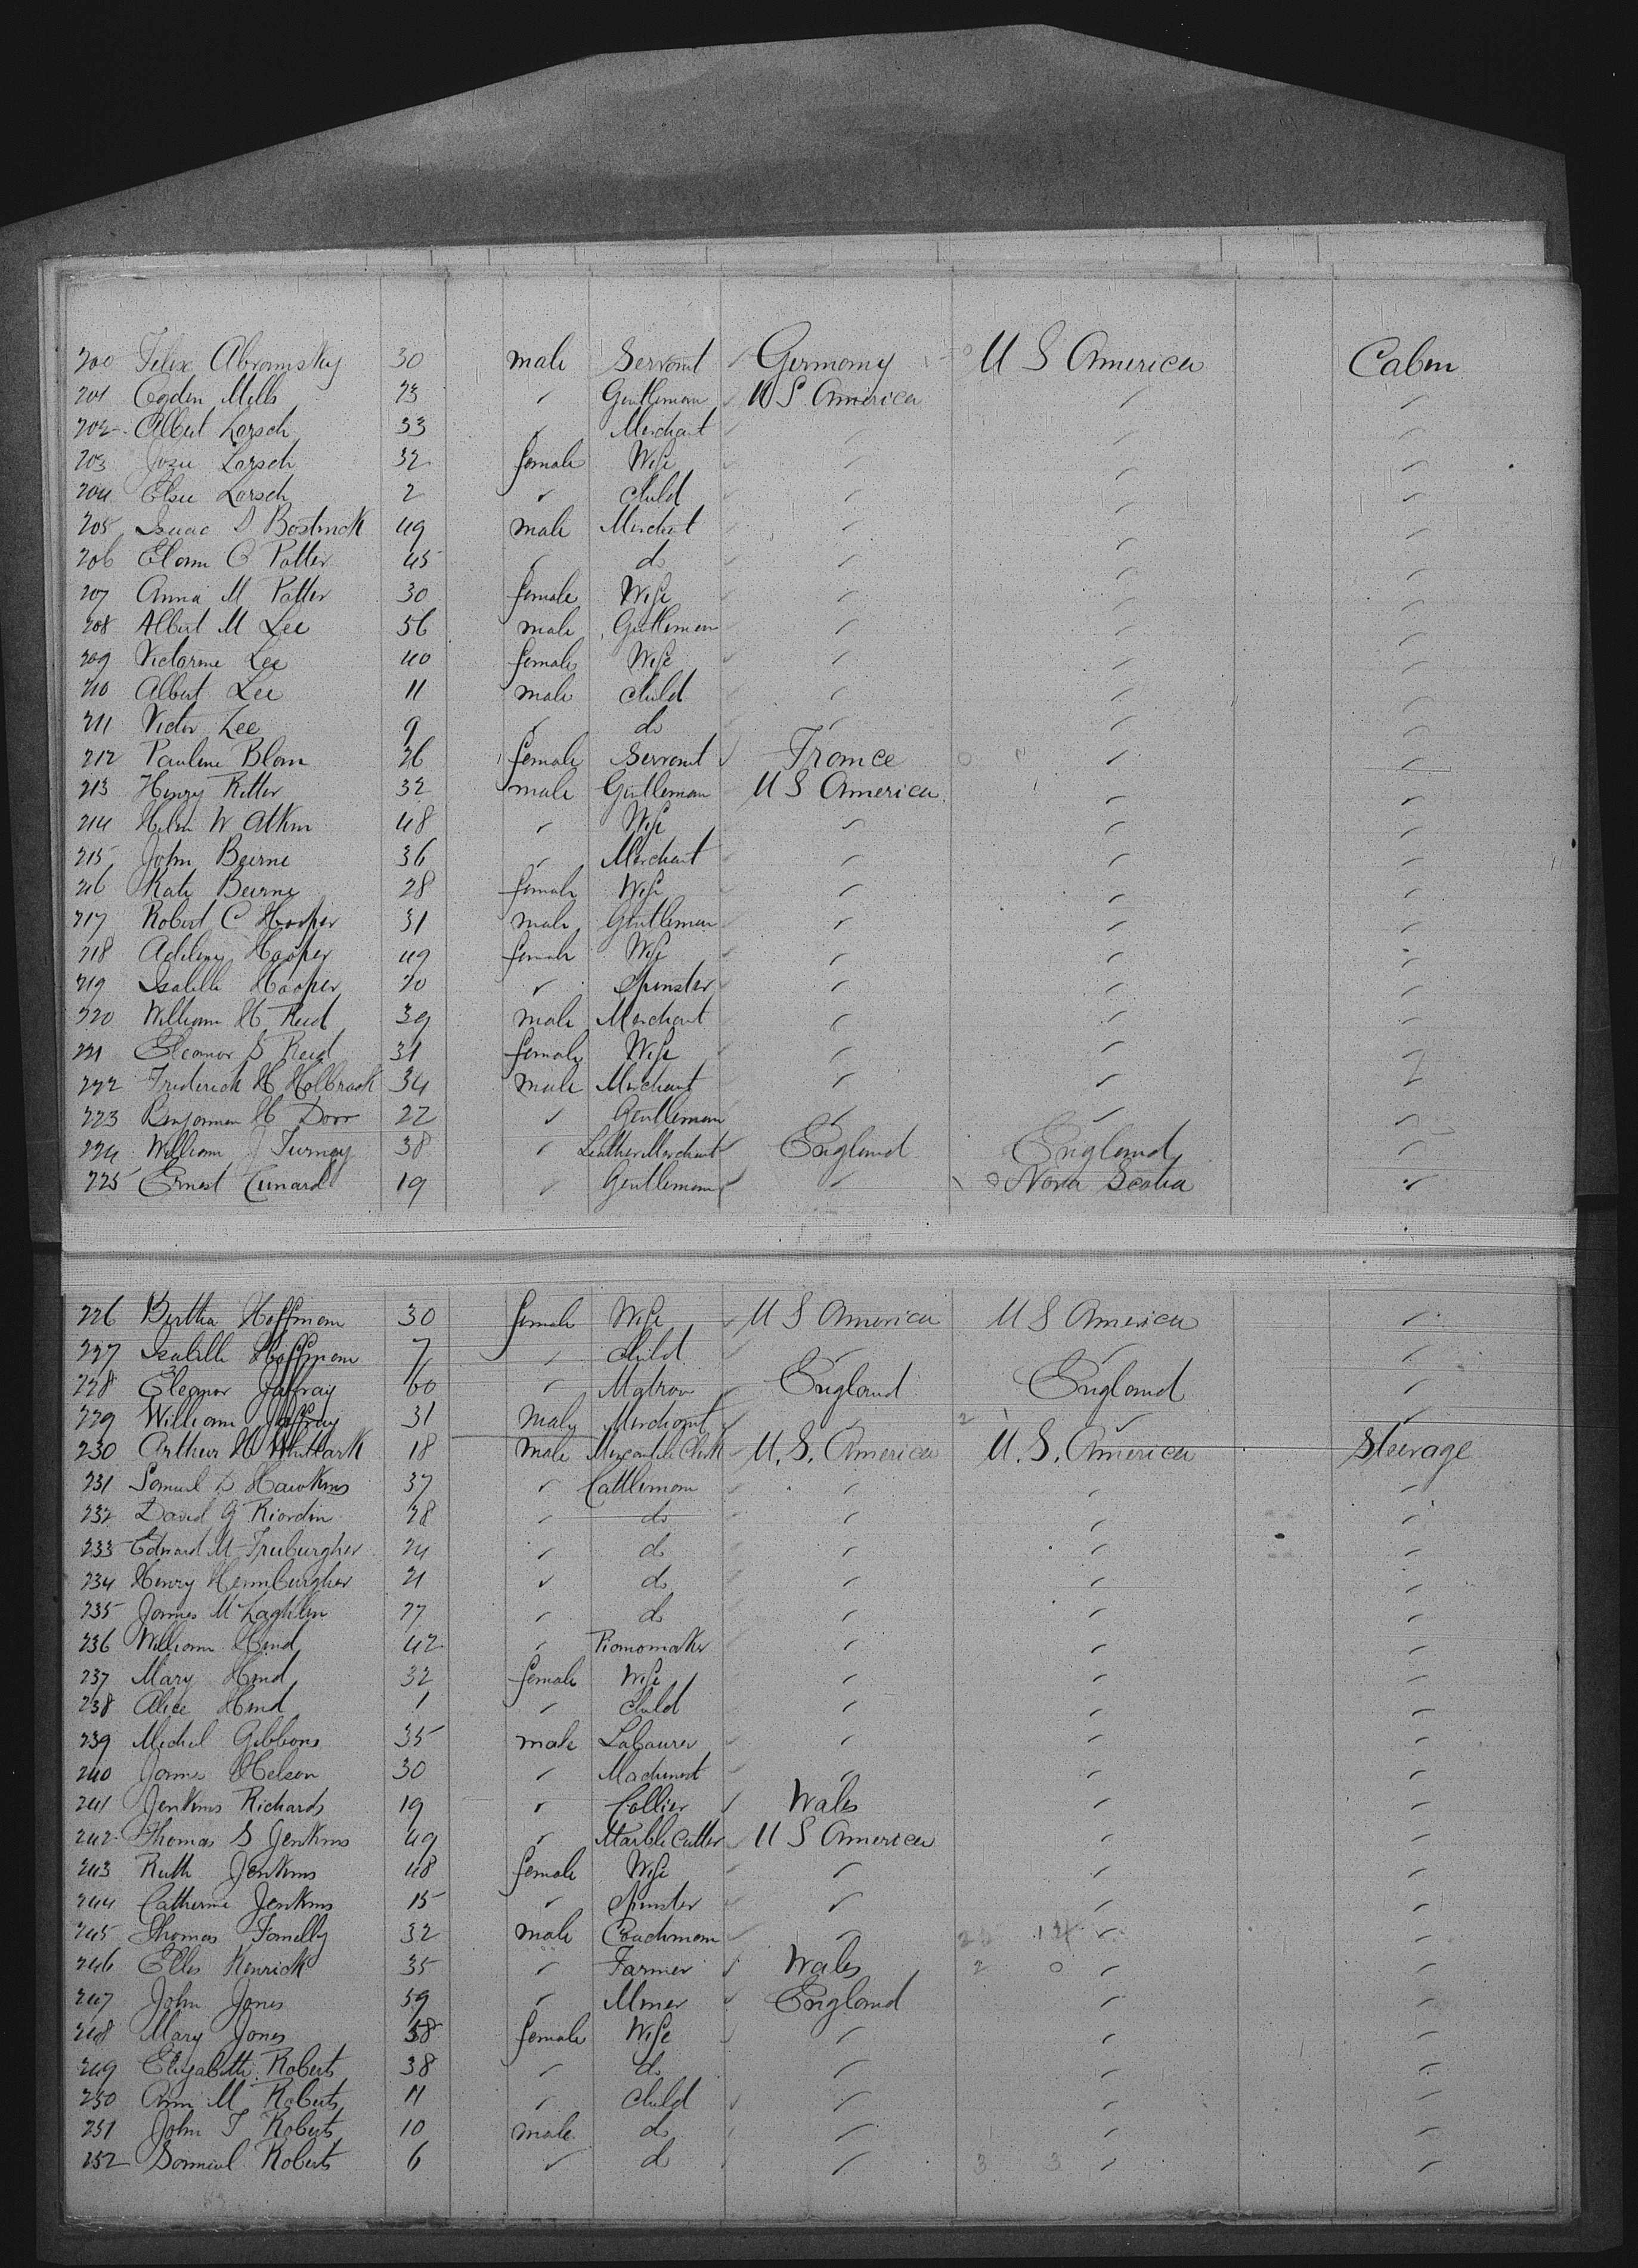 200 Felix Abramsky 30 male Servant Germany U S America Cabin
201 Ogden Mills 23 " Gentleman U S America " "
202 Albert Lorsch 33 " Merchant " " "
203 Josie Lorsch 32 female Wife " " "
204 Elsie Lorsch 2 " child " " "
205 Isaac D Bostwick 49 male Merchant " " "
206 O Potter 45 " do " " "
207 Anna M Potter 30 female Wife " " "
208 Albert M Lee 56 male Gentleman " " "
209 Victorine Lee 40 female Wife " " "
210 Albert Lee 11 male child " " "
211 Victor Lee 9 " do " " "
212 Pauline Blam 26 female Servant France " "
213 Henry Ritter 32 male Gentleman U S America " "
214 Helen W Atkin 48 " Wife " " "
215 John Beirne 36 " Merchant " " "
216 Kate Beirne 28 female Wife " " "
217 Robert C Hooper 31 male Gentleman " " "
218 Adeline Hooper 49 female Wife " " "
219 Isabella Hooper 20 " Spinster " " "
220 William H Reid 39 male Merchant " " "
221 Eleanor S Reid 31 female Wife " " "
222 Frederick H Holbrook 34 male Merchant " " "
223 Benjamin H Dorr 22 " Gentleman " " "
224 William J Turney 38 " Leather Merchant England England "
225 Ernest Cunard 19 " Gentleman " Nova Scotia "
226 Bertha Hoffman 30 female Wife U S America U S America "
227 Isabella Hoffman 7 " child " " "
228 Eleanor Jaffray 60 " Matron England England "
229 William Jaffray 31 Male Merchant " " "
230 Arthur H Whitlark 18 male Mercantile Clerk U. S. America U. S. America Steerage
231 Samuel D Hawkins 37 " Cattleman " " "
232 David G Riordin 28 " do " " "
233 Edward M Freiburgher 24 " do " " "
234 Henry Hennburgher 21 " do " " "
235 James McLaghlin 27 " do " " "
236 William Hind 42 " Pianomaker " " "
237 Mary Hind 32 female Wife " " "
238 Alice Hind 1 " child " " "
239 Michel Gibbons 35 male Labourer " " "
240 James Nelson 30 " Machinist " " "
241 Jenkins Richards 19 " Collier Wales " "
242 Thomas S Jenkins 49 " Marble Cutter U S America " "
243 Ruth Jenkins 48 female Wife " " "
244 Catherine Jenkins 15 " Spinster " " "
245 Thomas 32 male Coachman " " "
246 Ellis Kenrick 35 " Farmer Wales " "
247 John Jones 59 " Miner England " "
248 Mary Jones 58 female Wife " " "
249 Elizabeth Roberts 38 " do " " "
250 Ann M Roberts 11 " child " " "
251 John T Roberts 10 male do " " "
252 Samuel Roberts 6 " do " " "